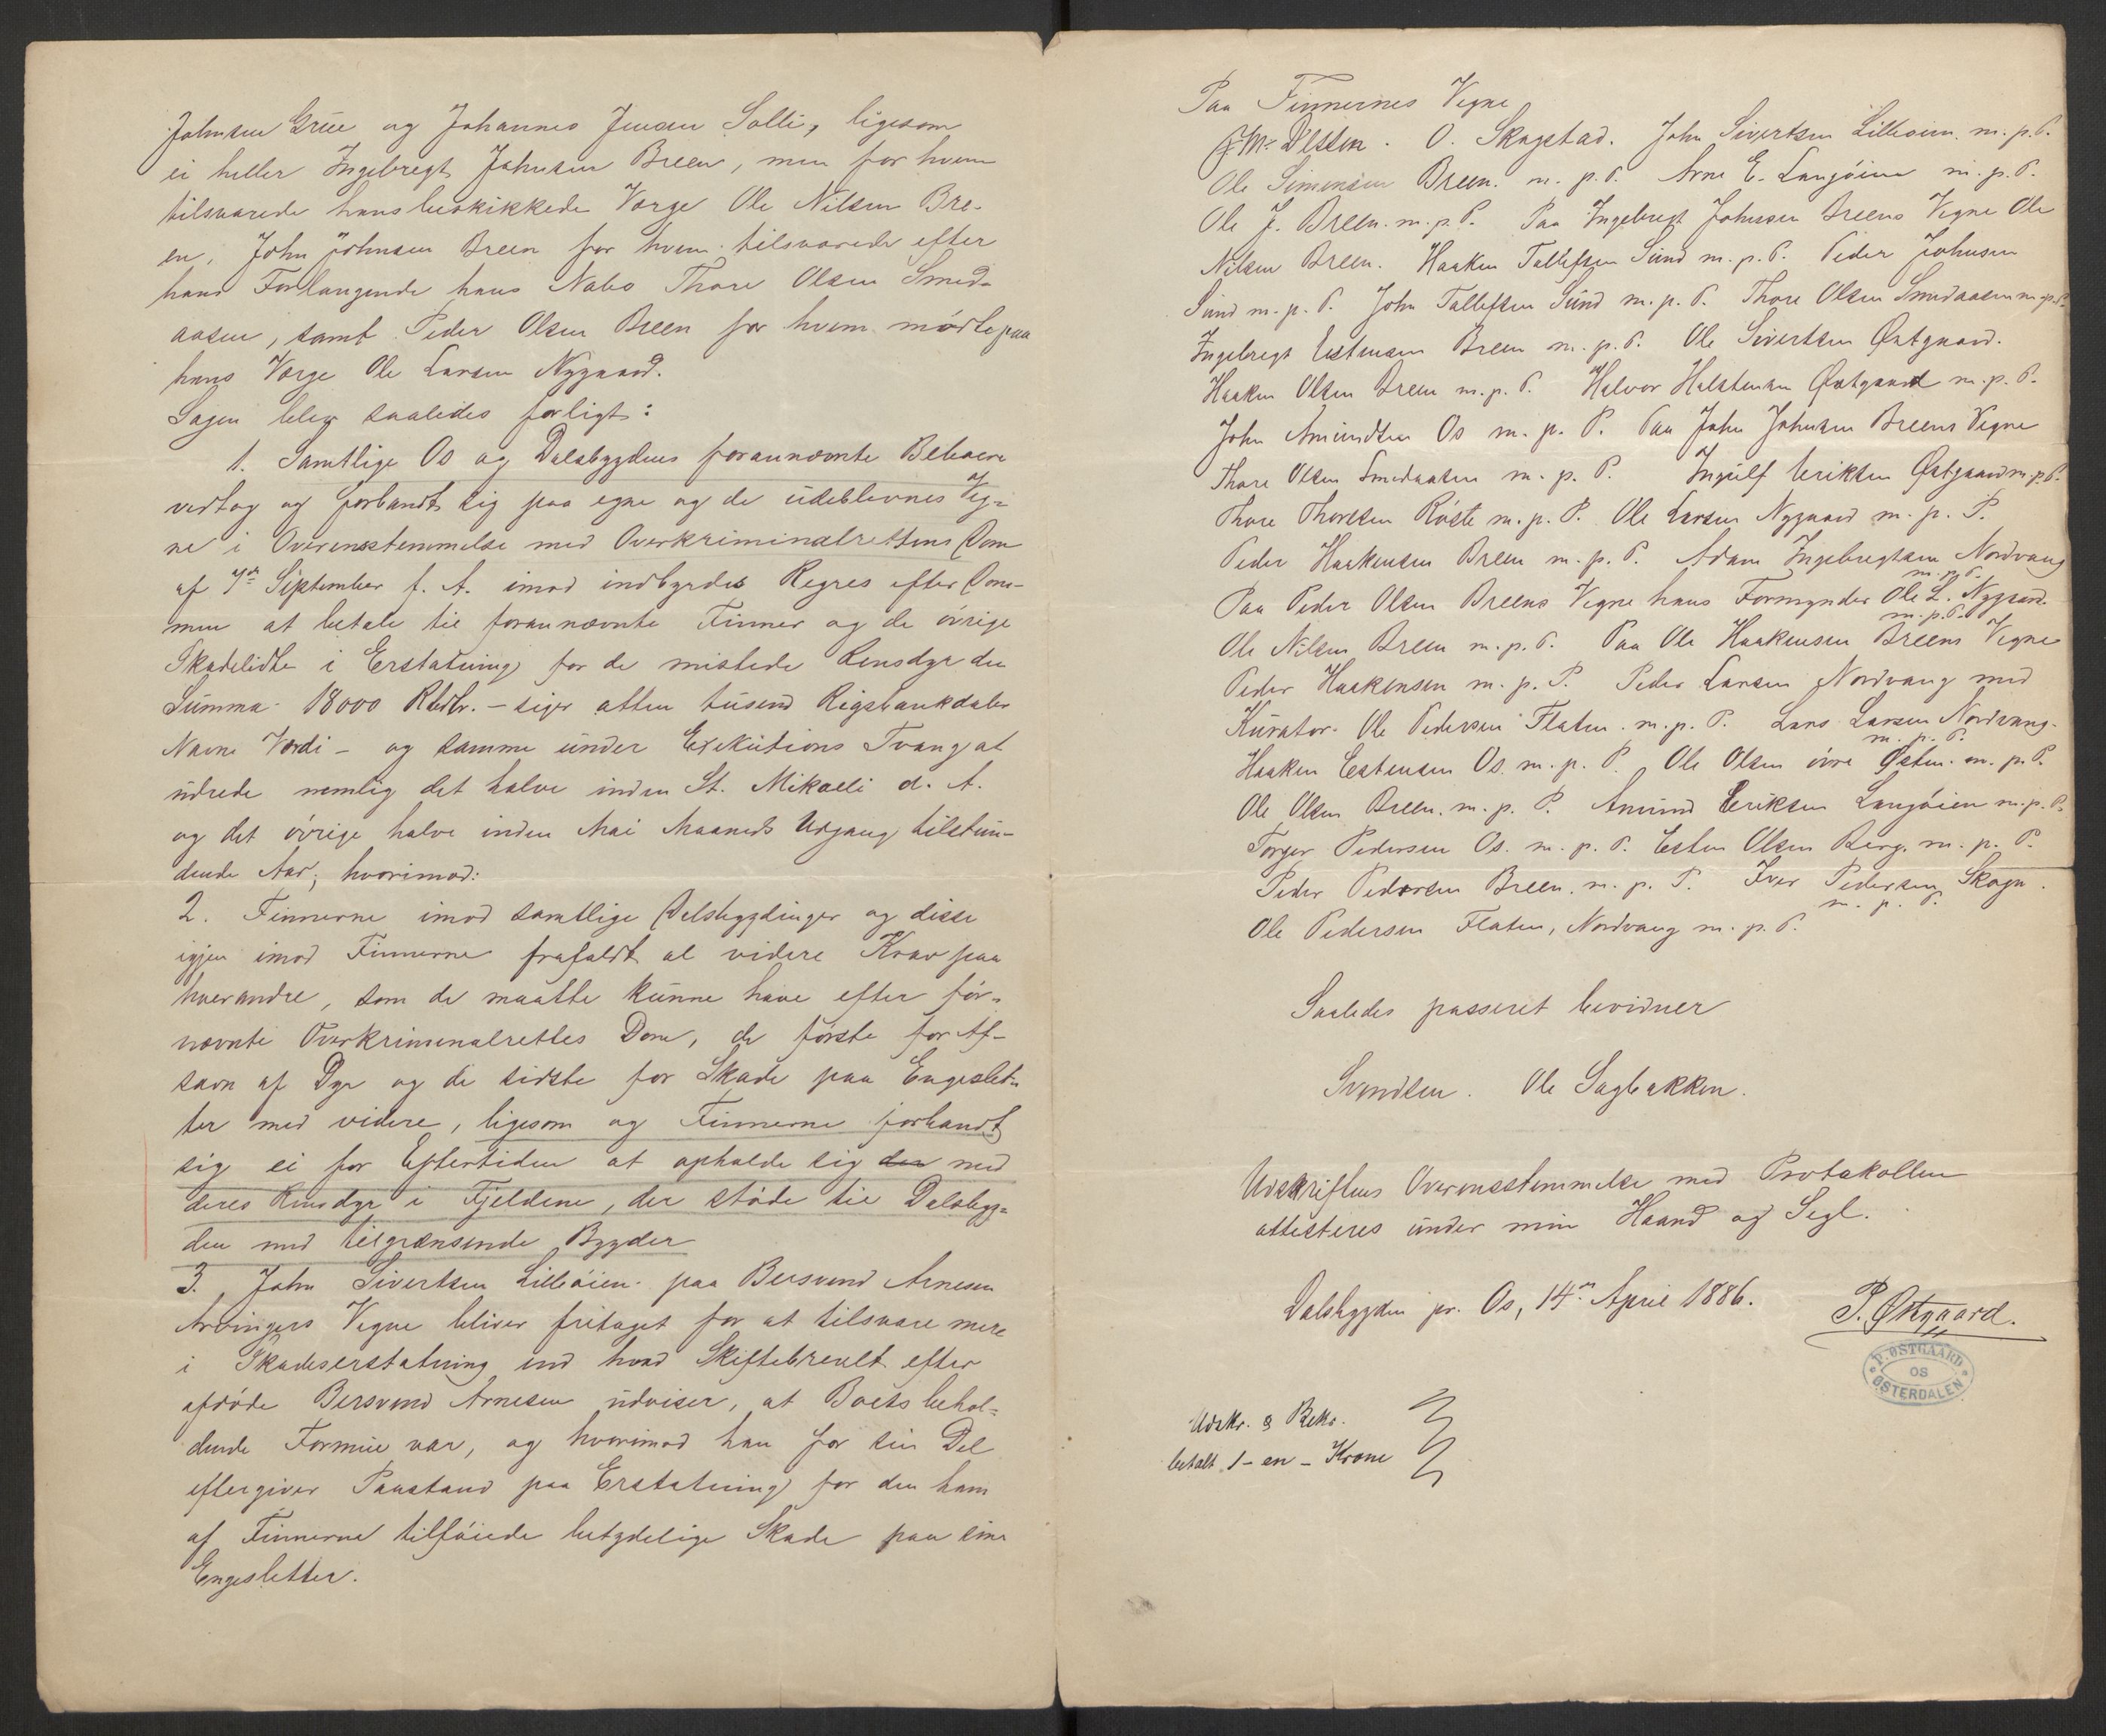 Johnsen Grue og Johannes Jensen Solli, ligesom
ei heller Ingebregt Johnsen Breen, men for hvem
tilsvarede hans beskikkede Værge Ole Nilsen Bre-
en, John Johnsen Breen for hvem tilsvarede efter
hans Forlangende hans Nabo Thore Olsen Smed-
aasen, samt Peder Olsen Breen for hvem mødte paa
hans Værge Ole Larsen Nygaard.
Sagen blev saaledes forligt:
1. Samtlige Os og Dalsbygdens forannævnte Beboere
vedtog og forbandt sig paa egne og de udeblevnes Veg-
ne i Overensstemmelse med Overkriminalrettens Dom
af 7de September f. A. imod indbyrdes Regres efter Dom-
men at betale til forannævnte Finner og de øvrige
Skadelidte i Erstatning for de mistede Rensdyr den
Summa 18000 Rbdlr. - siger atten tusend Rigsbankdaler
Navne Værdi - og samme under Exekutions Tvang at
udrede nemlig det halve inden St. Mikaeli d. A.
og det øvrige halve inden Mai Maaneds Udgang tilstun-
dende Aar; hvorimod:
2. Finnerne imod samtlige Dalsbygdinger og disse
igjen imod Finnerne frafaldt al videre Krav paa
hverandre, som de maatte kunne have efter før-
nævnte Overkriminalrettes Dom, de første for Af-
savn af Dyr og de sidste for Skade paa Engeslet-
ter med videre, ligesom og Finnerne forbandt
sig ei for Eftertiden at opholde sig den med
deres Rensdyr i Fjeldene, der støde til Dalsbyg-
den med tilgrænsende Bygder
3. John Sivertsen Lilleøien paa Bersvend Arnesen
Arvingers Vegne bliver fritaget for at tilsvare mere
i Skadeserstatning end hvad Skiftebrevet efter
afdøde Bersvend Arnesen udviser, at Boets behol-
dende Formue var, og hvorimod han for sin Del
eftergiver Paastand paa Erstatning for den ham
af Finnerne tilføiede betydelige Skade paa sine
Engesletter.
Paa Finnernes Vegne
O. Skogstad. John Sivertsen Lilleøien m. p. P.
Ole Simensen Breen. m. p. P. Arne E. Langøien m. p. P.
Ole J. Breen. m. p. P. Paa Ingebregt Johnsen Breens Vegne Ole
Nilsen Breen. Haaken Tollefsen Sund m. p. P. Peder Johnsen
Sund m. p. P. John Tollefsen Sund m. p. P. Thore Olsen Smedaasen m. p. P.
Ingebregt Estensen Breen m. p. P. Ole Sivertsen Østgaard.
Haaken Olsen Breen m. p. P. Halvor Halstensen Østgaard m. p. P.
John Amundsen Os m. p. P. Paa John Johnsen Breens Vegne
Thore Olsen Smedaasen m. p. P. Ingulf Eriksen Østgaard m. p. P.
Thore Thoresen Røste m. p. P. Ole Larsen Nygaard m. p. P.
Peder Haakensen Breen m. p. P. Adam Ingebregtsen Nordvang
m. p. P.
Paa Peder Olsen Breens Vegne hans Formynder Ole L. Nygaard
m. p. P.
Ole Nilsen Breen m. p. P. Paa Ole Haakensen Breens Vegne
Peder Haakensen m. p. P. Peder Larsen Nordvang med
Kurator Ole Pedersen Flaten. m. p. P. Lars Larsen Nordvang.
m. p. P.
Haaken Estensen Os. m. p. P. Ole Olsen øvre Østen. m. p. P.
Ole Olsen Breen. m. p. P. Amund Eriksen Langøien m. p. P.
Torger Pedersen Os. m. p. P. Esten Olsen Berg. m. p. P.
Peder Pedersen Breen. m. p. P. Iver Pedersen Skogn.
m. p. P.
Ole Pedersen Flaten, Nordvang m. p. P.
Saaledes passeret bevidner
Svendsen. Ole Sagbakken.
Udskriftens Overensstemmelse med Protokollen
attesteres under min Haand og Segl.
Dalsbygden pr. Os, 14de April 1886. P. Østgaard.
P. ØSTGAARD
OS
ØSTERDALEN
Udskr. & Bekr.
betalt 1 - en - Krone